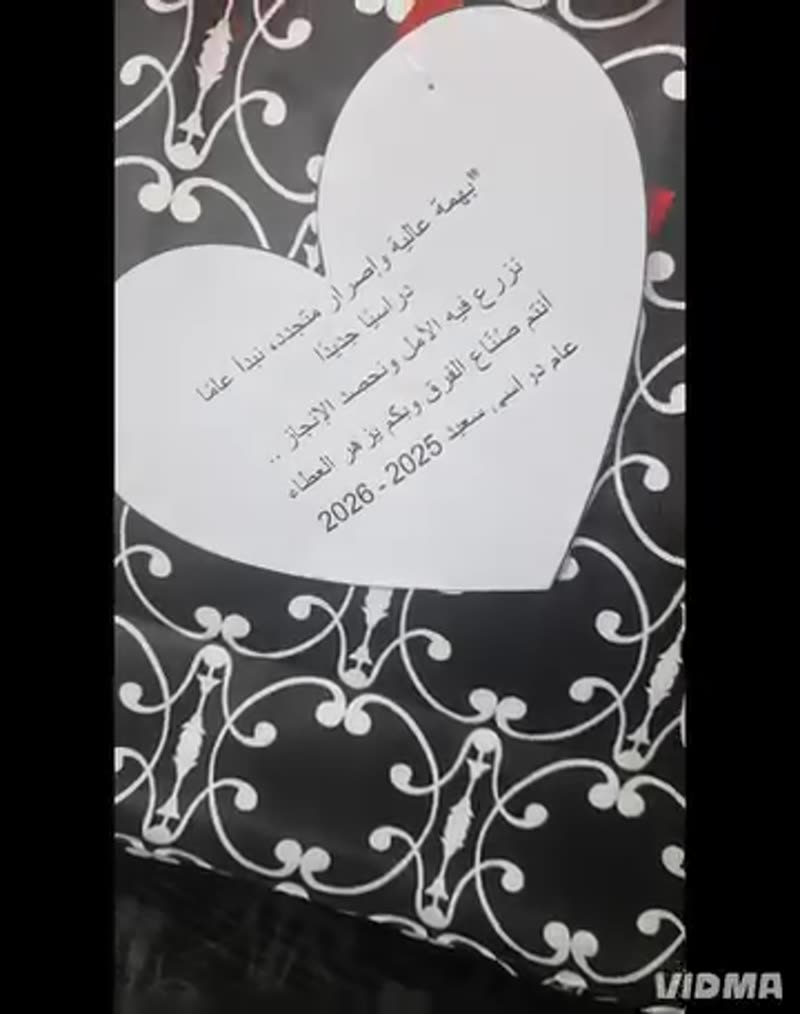 "بهمة عالية وإصرار متجدد، نبدأ عامًا
دراسيًا جديدًا
نزرع فيه الأمل ونحصد الإنجاز ..
أنتم صُنّاع الفرق وبكم يزهر العطاء
عام دراسي سعيد 2025 - 2026
VIDMA